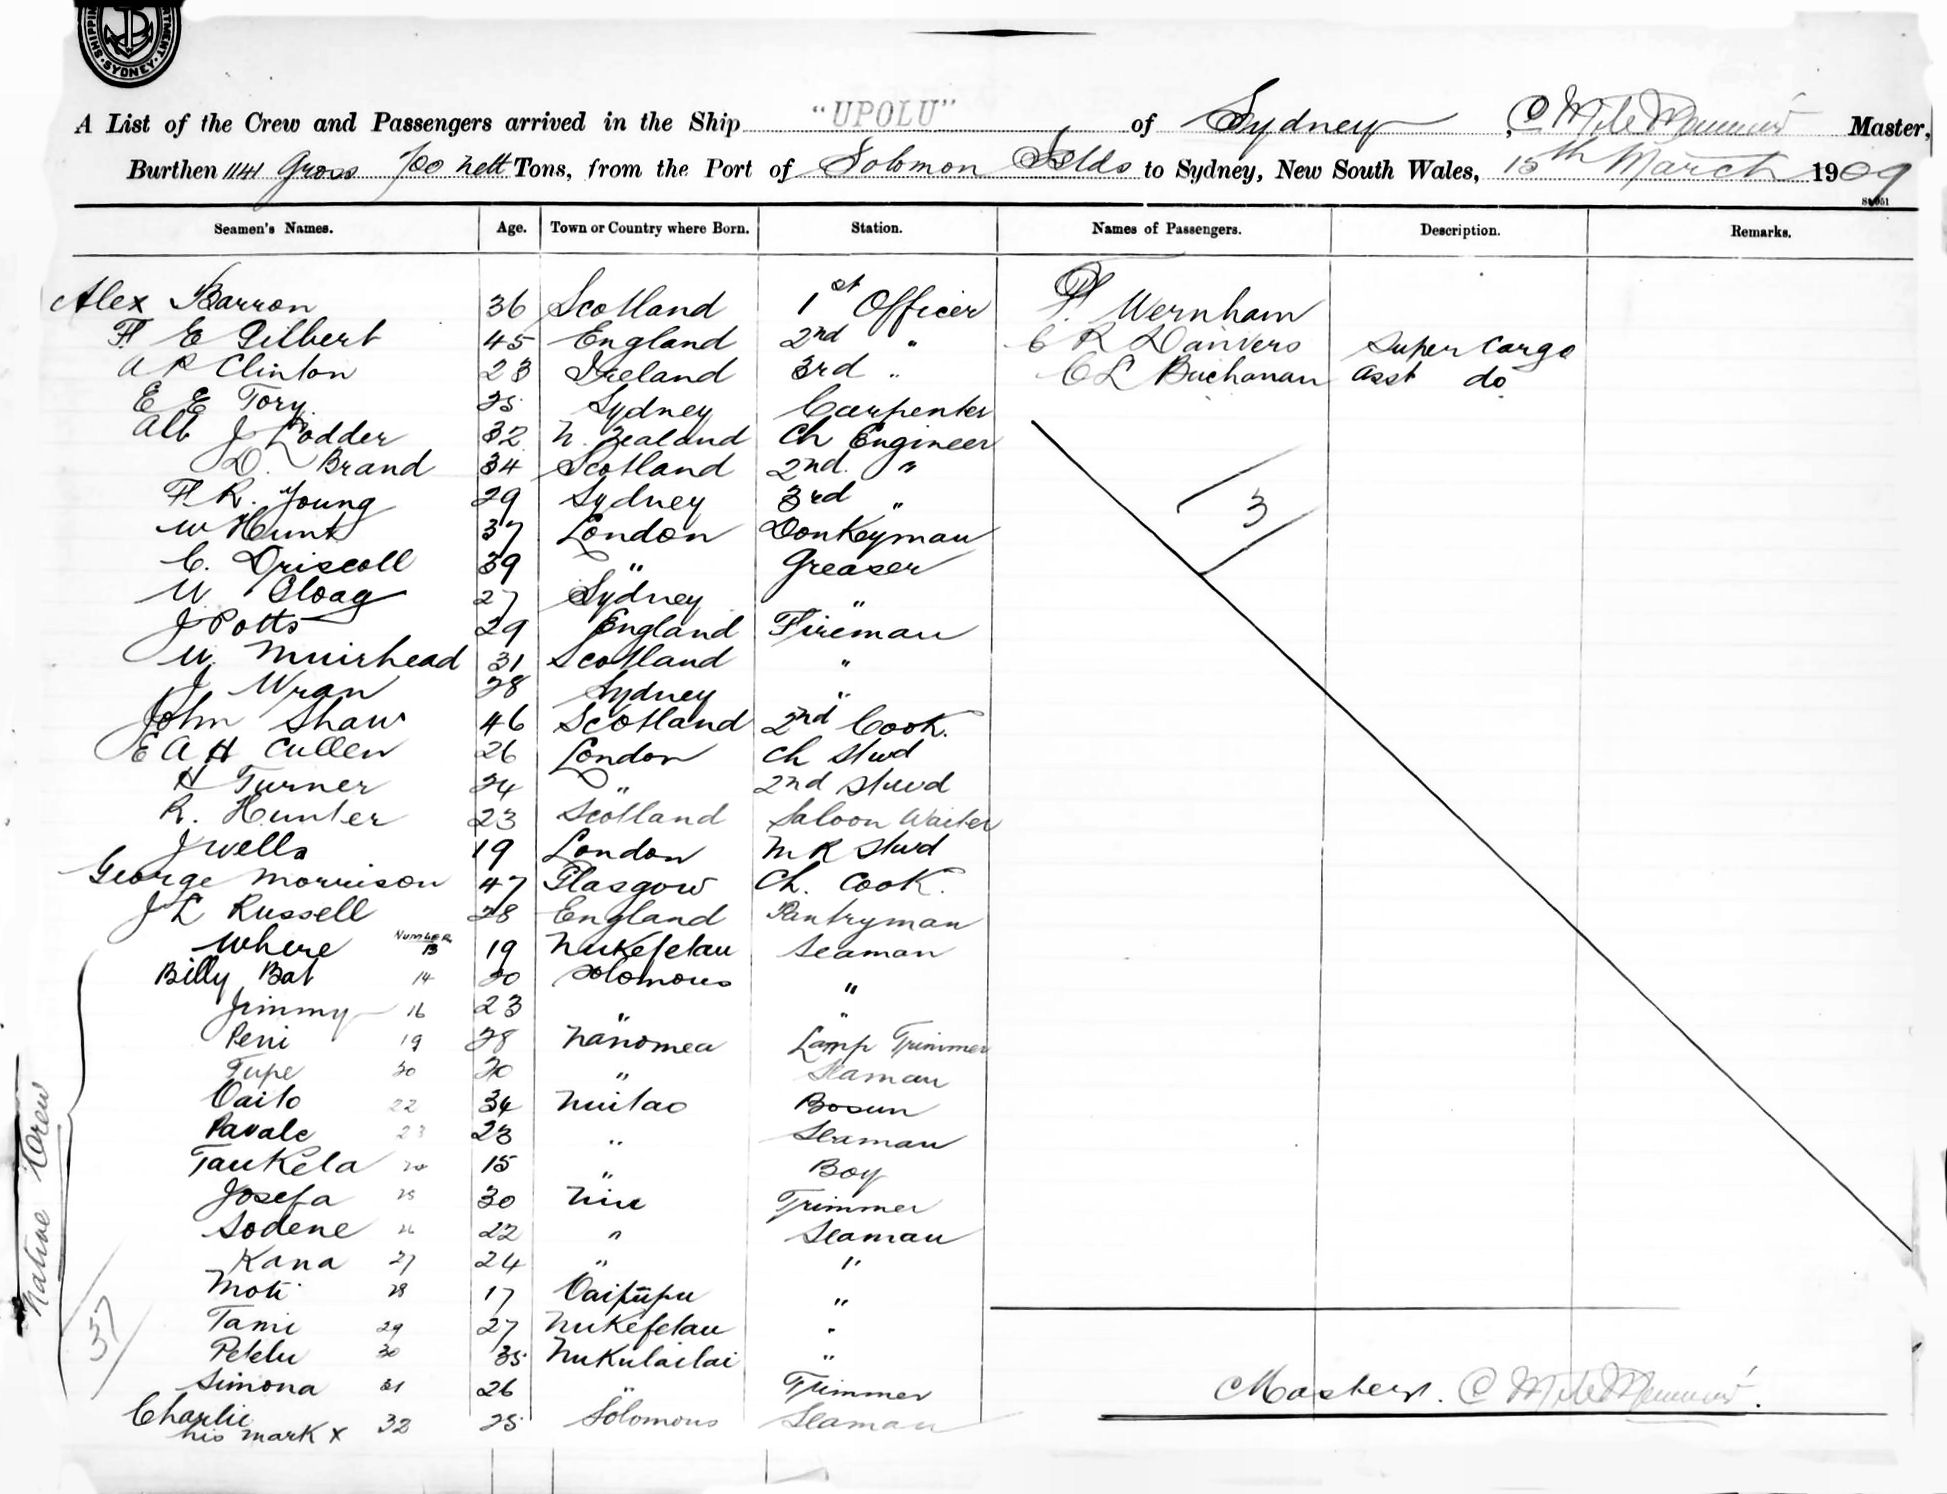 SHIPPING DEPARTMENT · SYDNEY ·
A List of the Crew and Passengers arrived in the Ship "UPOLU" of Sydney, Master,
Burthen 1141 Gross 700 nett Tons, from the Port of Solomon Islds to Sydney, New South Wales, 15th March 1909
Seamen's Names. Age. Town or Country where Born. Station. Names of Passengers. Description. Remarks.
Alex Barron 36 Scotland 1st Officer F. Wernham
F E Gilbert 45 England 2nd " C R Danvers Super Cargo
A R Clinton 23 Ireland 3rd " C L Buchanan asst do
E E Tory 25 Sydney Carpenter
Alb J Lodder 32 N. Zealand Ch Engineer
D. Brand 34 Scotland 2nd. "
F R. Young 29 Sydney 3rd "
W Hunt 37 London Donkeyman
C. Driscoll 39 " Greaser
W Cloag 27 Sydney "
J Potts 29 England Fireman
W Muirhead 31 Scotland "
J Wran 28 Sydney "
John Shaw 46 Scotland 2nd Cook.
E A H Cullen 26 London Ch Stwd
H Turner 24 " 2nd Stwd
R. Hunter 23 Scotland Saloon Waiter
J Wells 19 London M R Stwd
George Morrison 47 Glasgow Ch. Cook.
J L Russell 28 England Pantryman
Where NUMBER 13 19 Nukefetau Seaman
Billy Bat 14 20 Solomons "
Jimmy 16 23 " "
Peni 19 28 Nanomea Lamp Trimmer
Tupe 20 20 " Seaman
Vaito 22 34 Niutao Bosun
Pavale 23 23 " Seaman
Taukela 24 15 " Boy
Josefa 25 30 Niu Trimmer
Sodene 26 22 " Seaman
Kana 27 24 " "
Moti 28 17 Vaipupu "
Tami 29 27 Nukefetau "
Pelelu 30 35 Nukulailai "
Simona 31 26 " Trimmer
Charlie 32 25 Solomons Seaman
his mark x
Native Crew
37
3
Master.